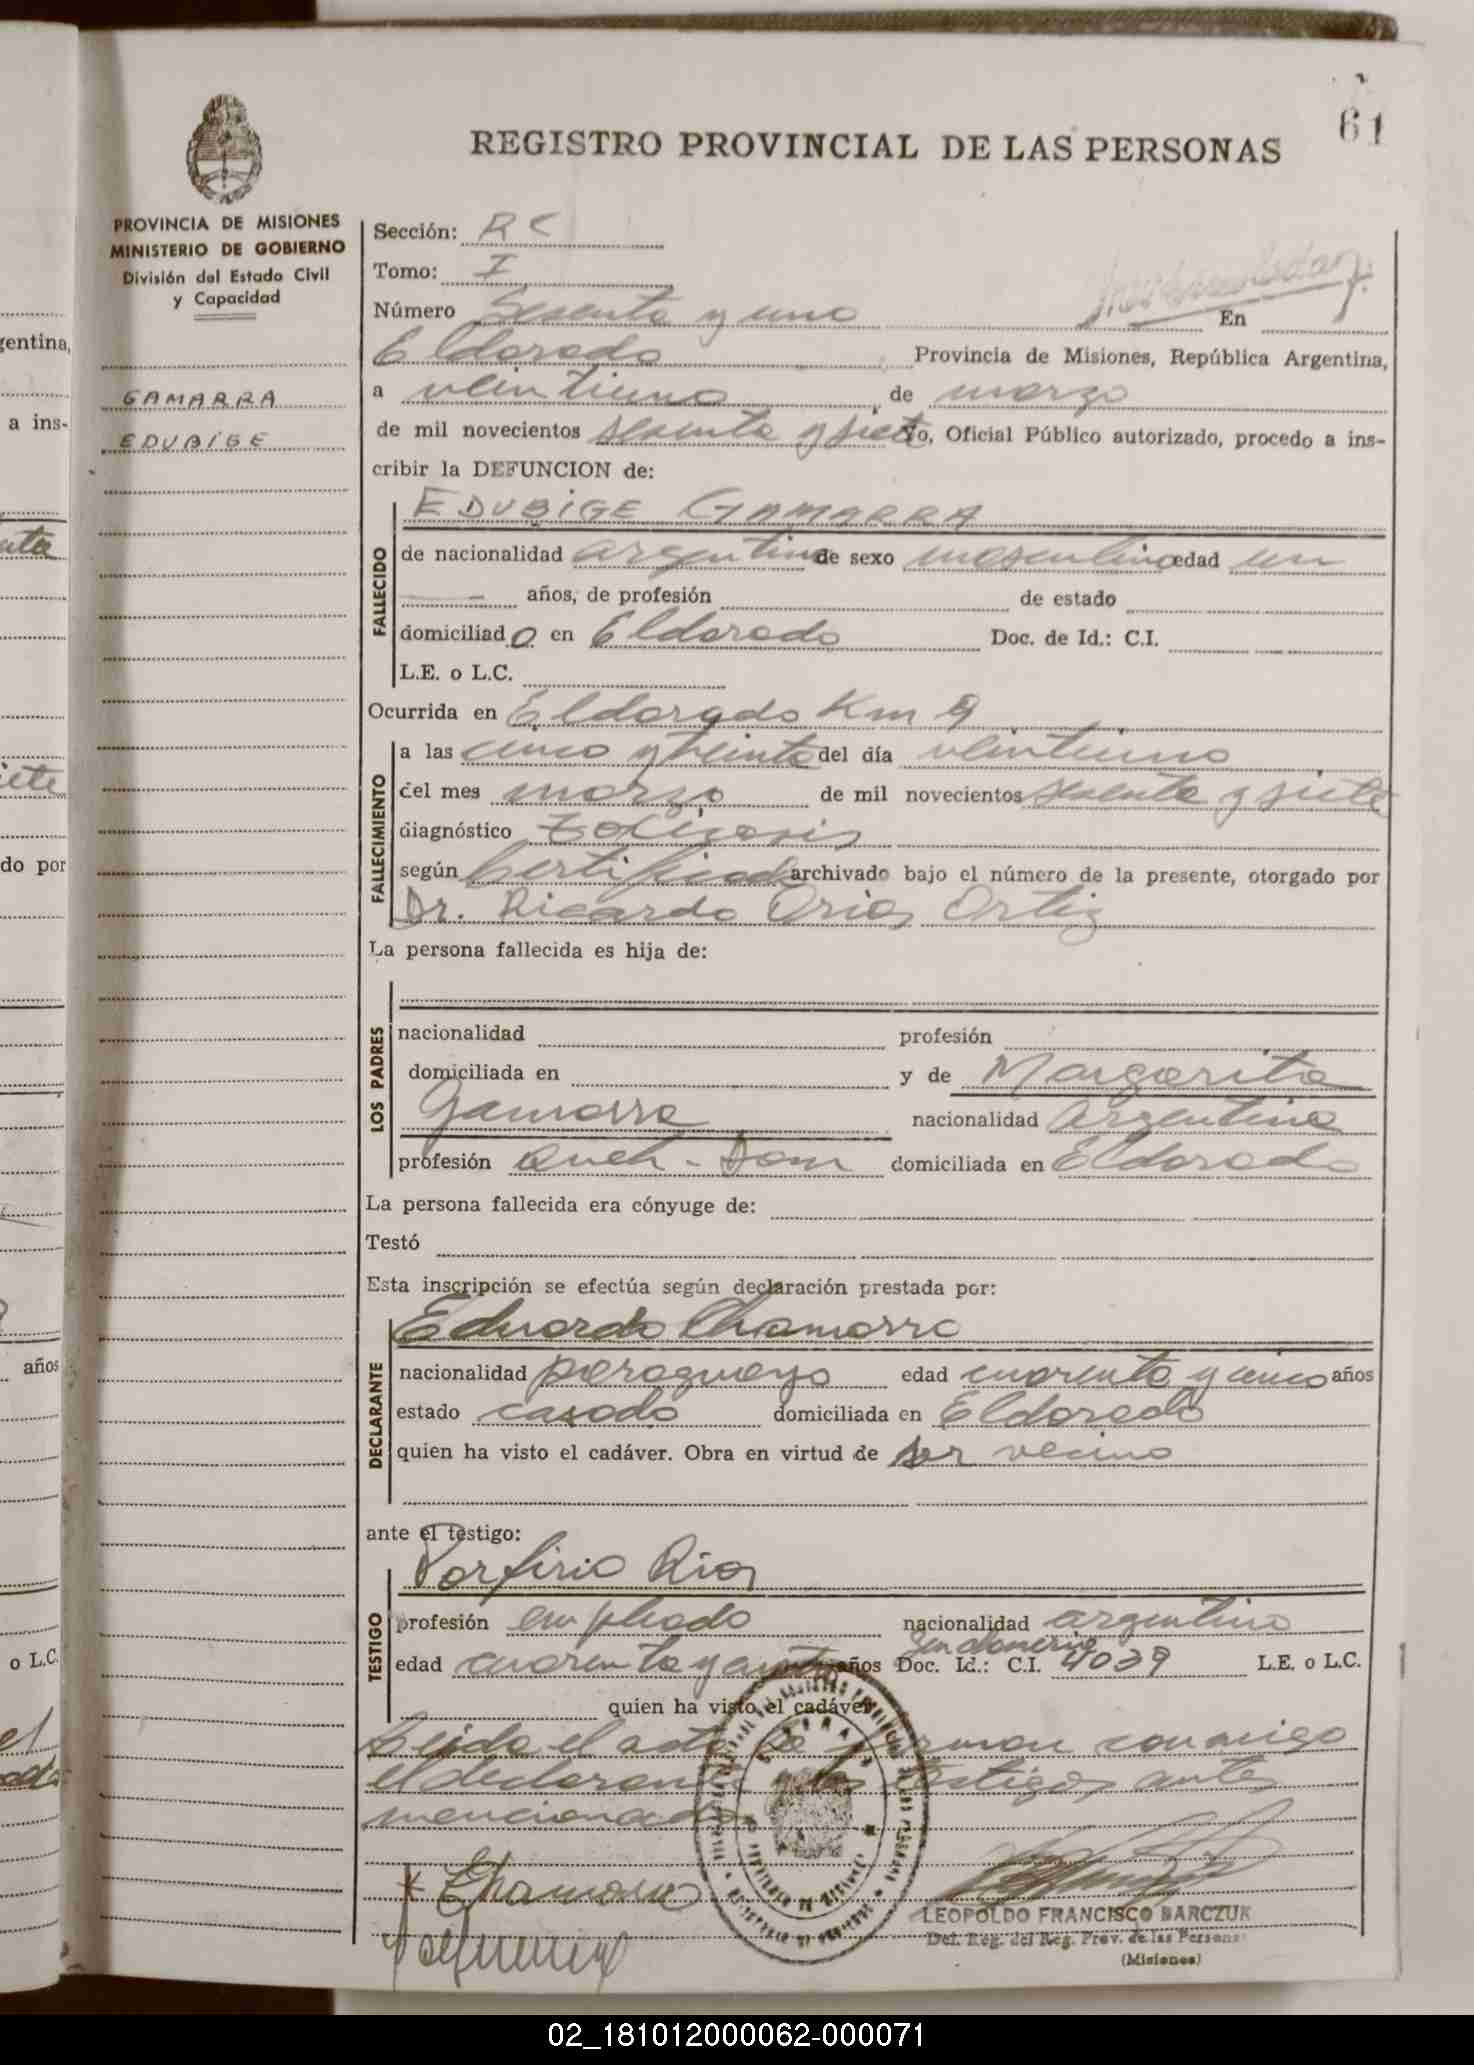 61
REGISTRO PROVINCIAL DE LAS PERSONAS
PROVINCIA DE MISIONES
MINISTERIO DE GOBIERNO
División del Estado Civil
y Capacidad
GAMARRA
EDUBIGE
Sección: RC
Tomo: I
Número Sesenta y uno En
Eldorado Provincia de Misiones, República Argentina,
a veintiuno de marzo
de mil novecientos sesenta y siete Yo, Oficial Público autorizado, procedo a ins-
cribir la DEFUNCION de:
FALLECIDO
EDUBIGE GAMARRA
de nacionalidad argentina de sexo masculino edad un
años, de profesión de estado
domiciliado en Eldorado Doc. de Id.: C.I.
L.E. o L.C.
Ocurrida en Eldorado Km 9
FALLECIMIENTO
a las cinco y treinta del día veintiuno
del mes marzo de mil novecientos sesenta y siete
diagnóstico
según Certificado archivado bajo el número de la presente, otorgado por
Dr. Ricardo Ortiz
La persona fallecida es hija de:
LOS PADRES
nacionalidad profesión
domiciliada en y de Margarita
Gamarra nacionalidad Argentina
profesión Queh-Dom domiciliada en Eldorado
La persona fallecida era cónyuge de:
Testó
Esta inscripción se efectúa según declaración prestada por:
DECLARANTE
Eduardo Chamorro
nacionalidad paraguayo edad cuarenta y cinco años
estado casado domiciliada en Eldorado
quien ha visto el cadáver. Obra en virtud de ser vecino
ante el testigo:
TESTIGO
Porfirio Rios
profesión empleado nacionalidad argentino
edad cuarenta y años Doc. Id.: C.I. 4039 L.E. o L.C.
quien ha visto el cadáver
Leida el acta la firman conmigo
el declarante y los testigos antes
mencionados
LEOPOLDO FRANCISCO BARCZUK
Del. Reg. del Reg. Prov. de las Personas
(Misiones)
gentina,
a ins-
do por
años
o L.C.
02_181012000062-000071